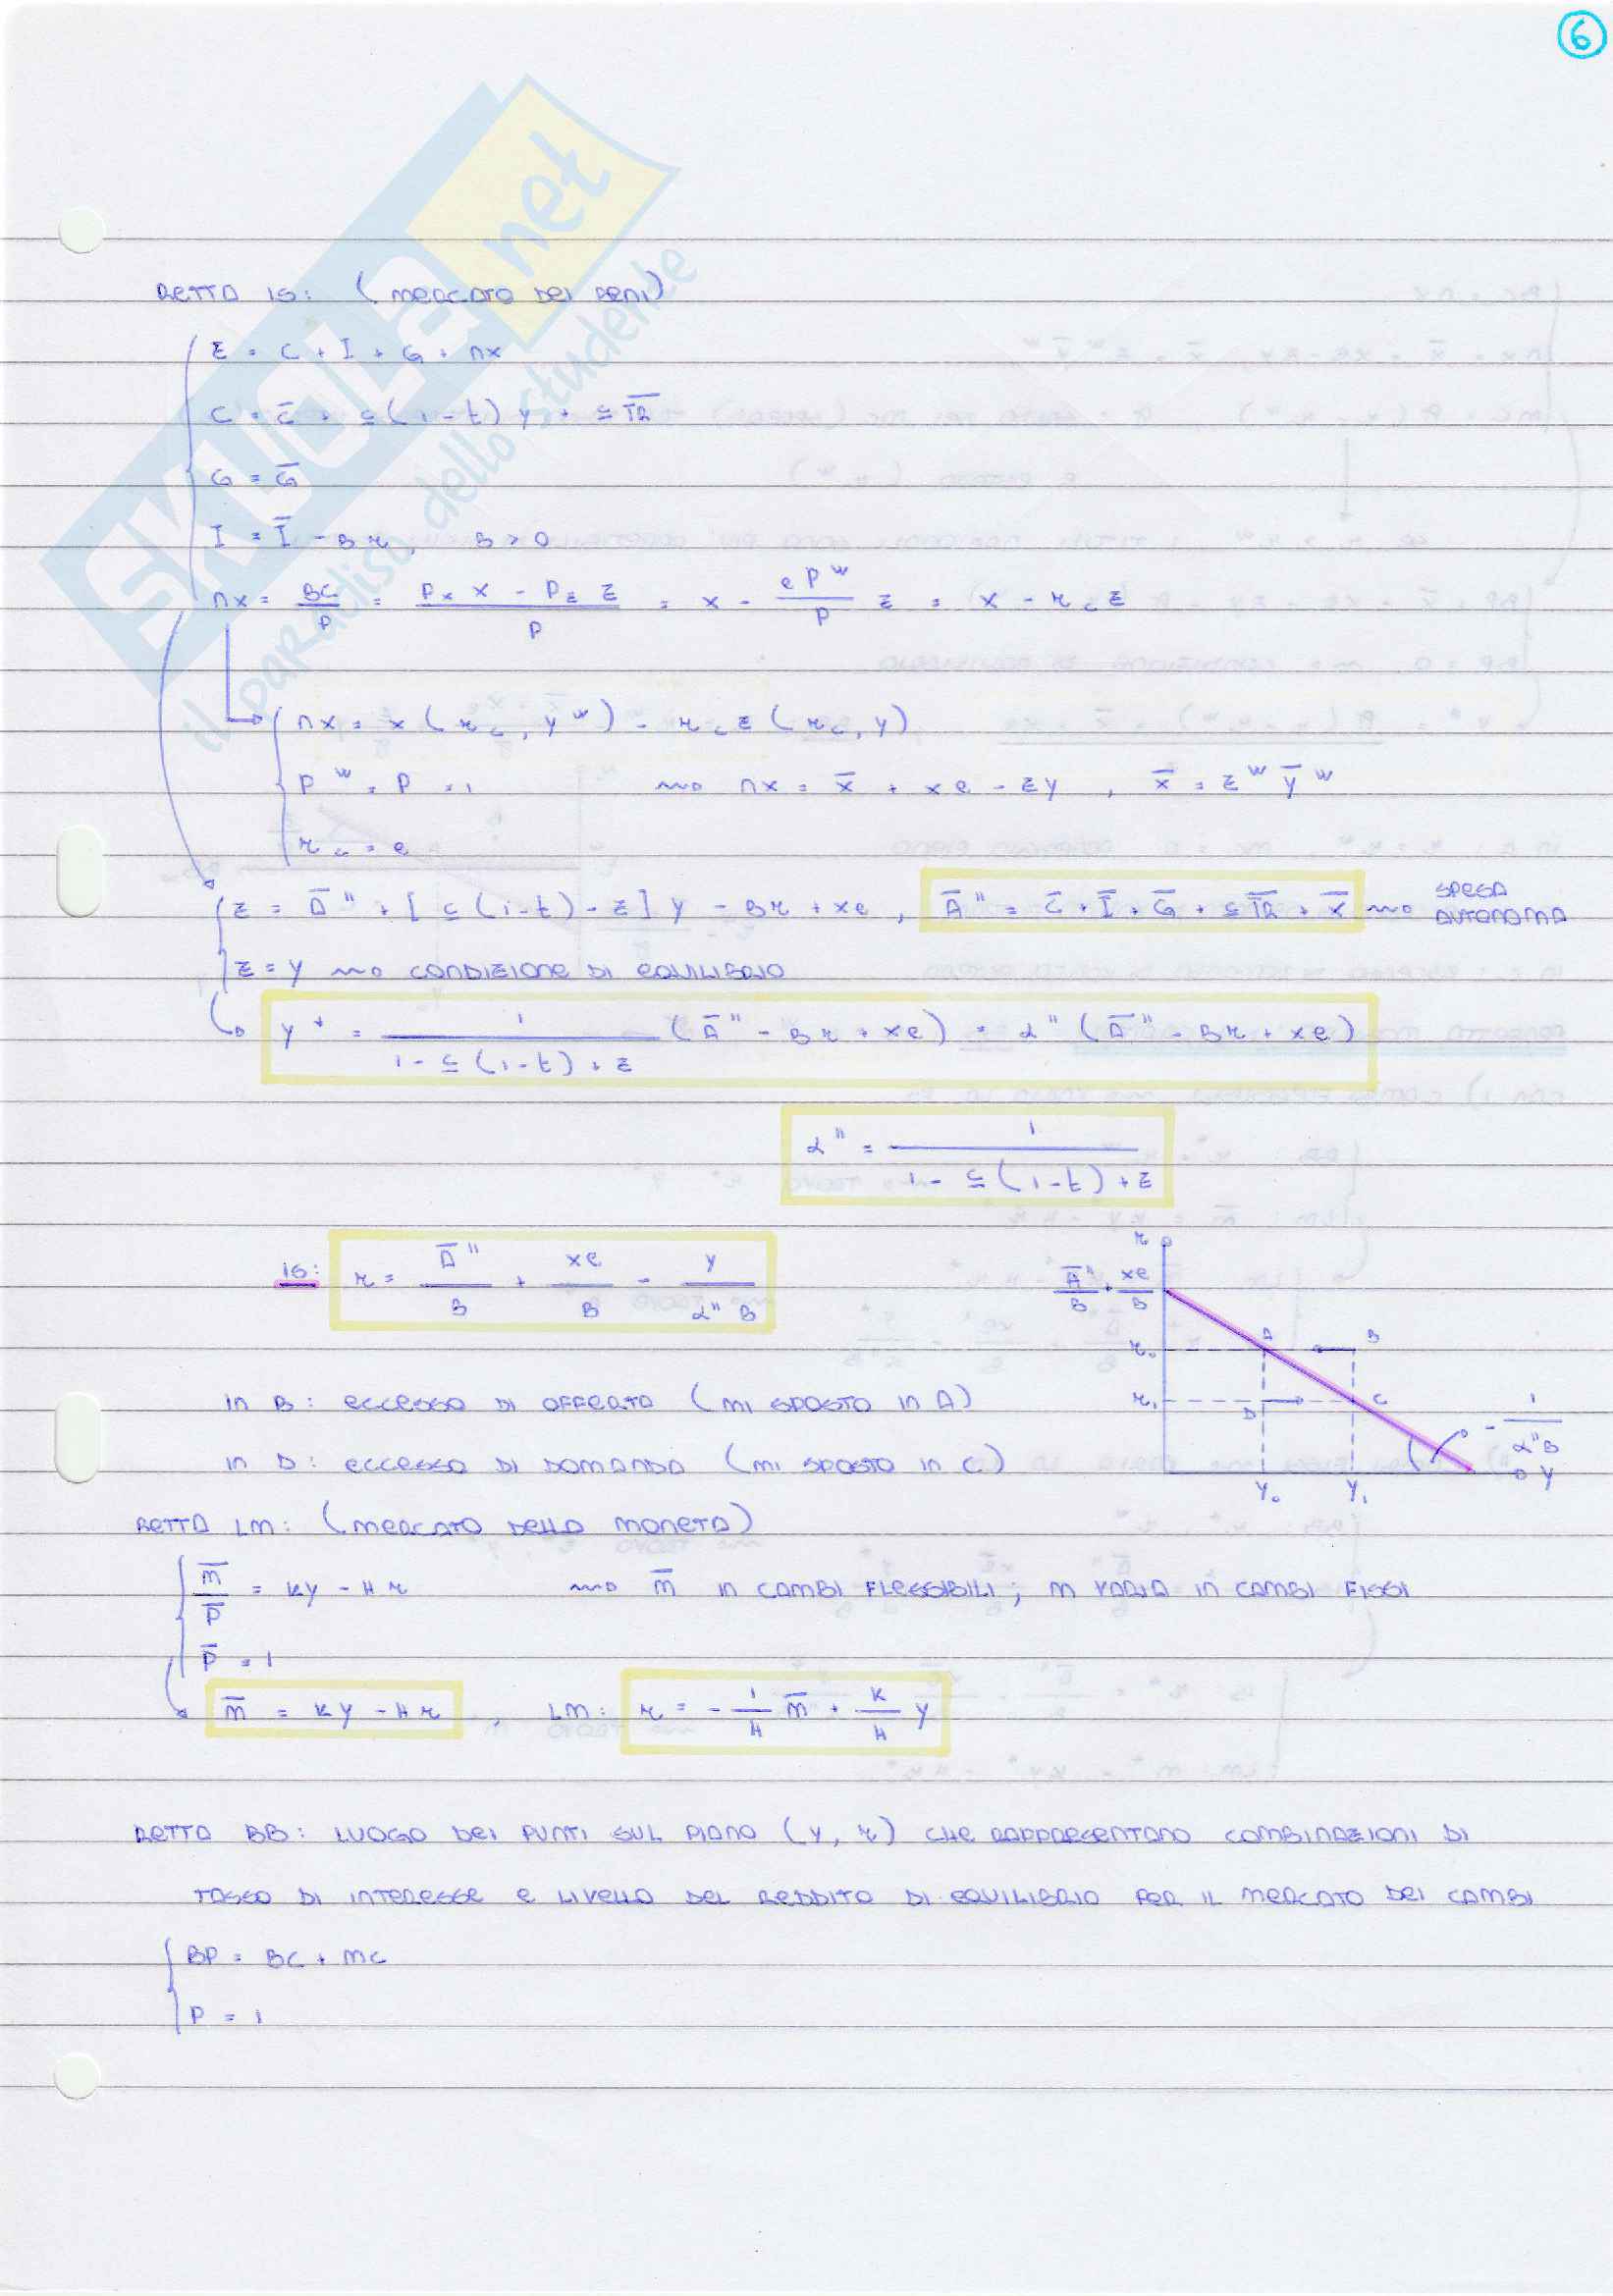 6
SKUOLA.net
il paradiso dello studente
RETTA IS: (MERCATO DEI BENI)
E = C + I + G + NX
C = C̅ + c(1-t)Y + cT̅R̅
G = G̅
I = I̅ - Br, B > 0
NX = BC/P = (Pₓ X - P_Z Z)/P = X - (eP^W/P) Z = X - r_c Z
NX = X(r_c, Y^W) - r_c Z(r_c, Y)
P^W = P = 1 ⟿ NX = X̅ + xe - zY, X̅ = z^W Y̅^W
r_c = e
E = A̅" + [c(1-t) - z]Y - Br + xe, A̅" = C̅ + I̅ + G̅ + cT̅R̅ + X̅ ⟿ SPESA AUTONOMA
E = Y ⟿ CONDIZIONE DI EQUILIBRIO
Y* = 1/(1 - c(1-t) + z) (A̅" - Br + xe) = α"(A̅" - Br + xe)
α" = 1/(1 - c(1-t) + z)
IS: r = A̅"/B + xe/B - Y/(α"B)
r
A̅"/B + xe/B
r₀ A B
r₁ D C
-1/(α"B)
Y₀ Y₁ Y
IN B: ECCESSO DI OFFERTA (MI SPOSTO IN A)
IN D: ECCESSO DI DOMANDA (MI SPOSTO IN C)
RETTA LM: (MERCATO DELLA MONETA)
M̅/P̅ = KY - Hr ⟿ M̅ IN CAMBI FLESSIBILI; M VARIA IN CAMBI FISSI
P̅ = 1
M̅ = KY - Hr, LM: r = -1/H M̅ + K/H Y
RETTA BB: LUOGO DEI PUNTI SUL PIANO (Y, r) CHE RAPPRESENTANO COMBINAZIONI DI
TASSO DI INTERESSE E LIVELLO DEL REDDITO DI EQUILIBRIO PER IL MERCATO DEI CAMBI
BP = BC + MC
P = 1